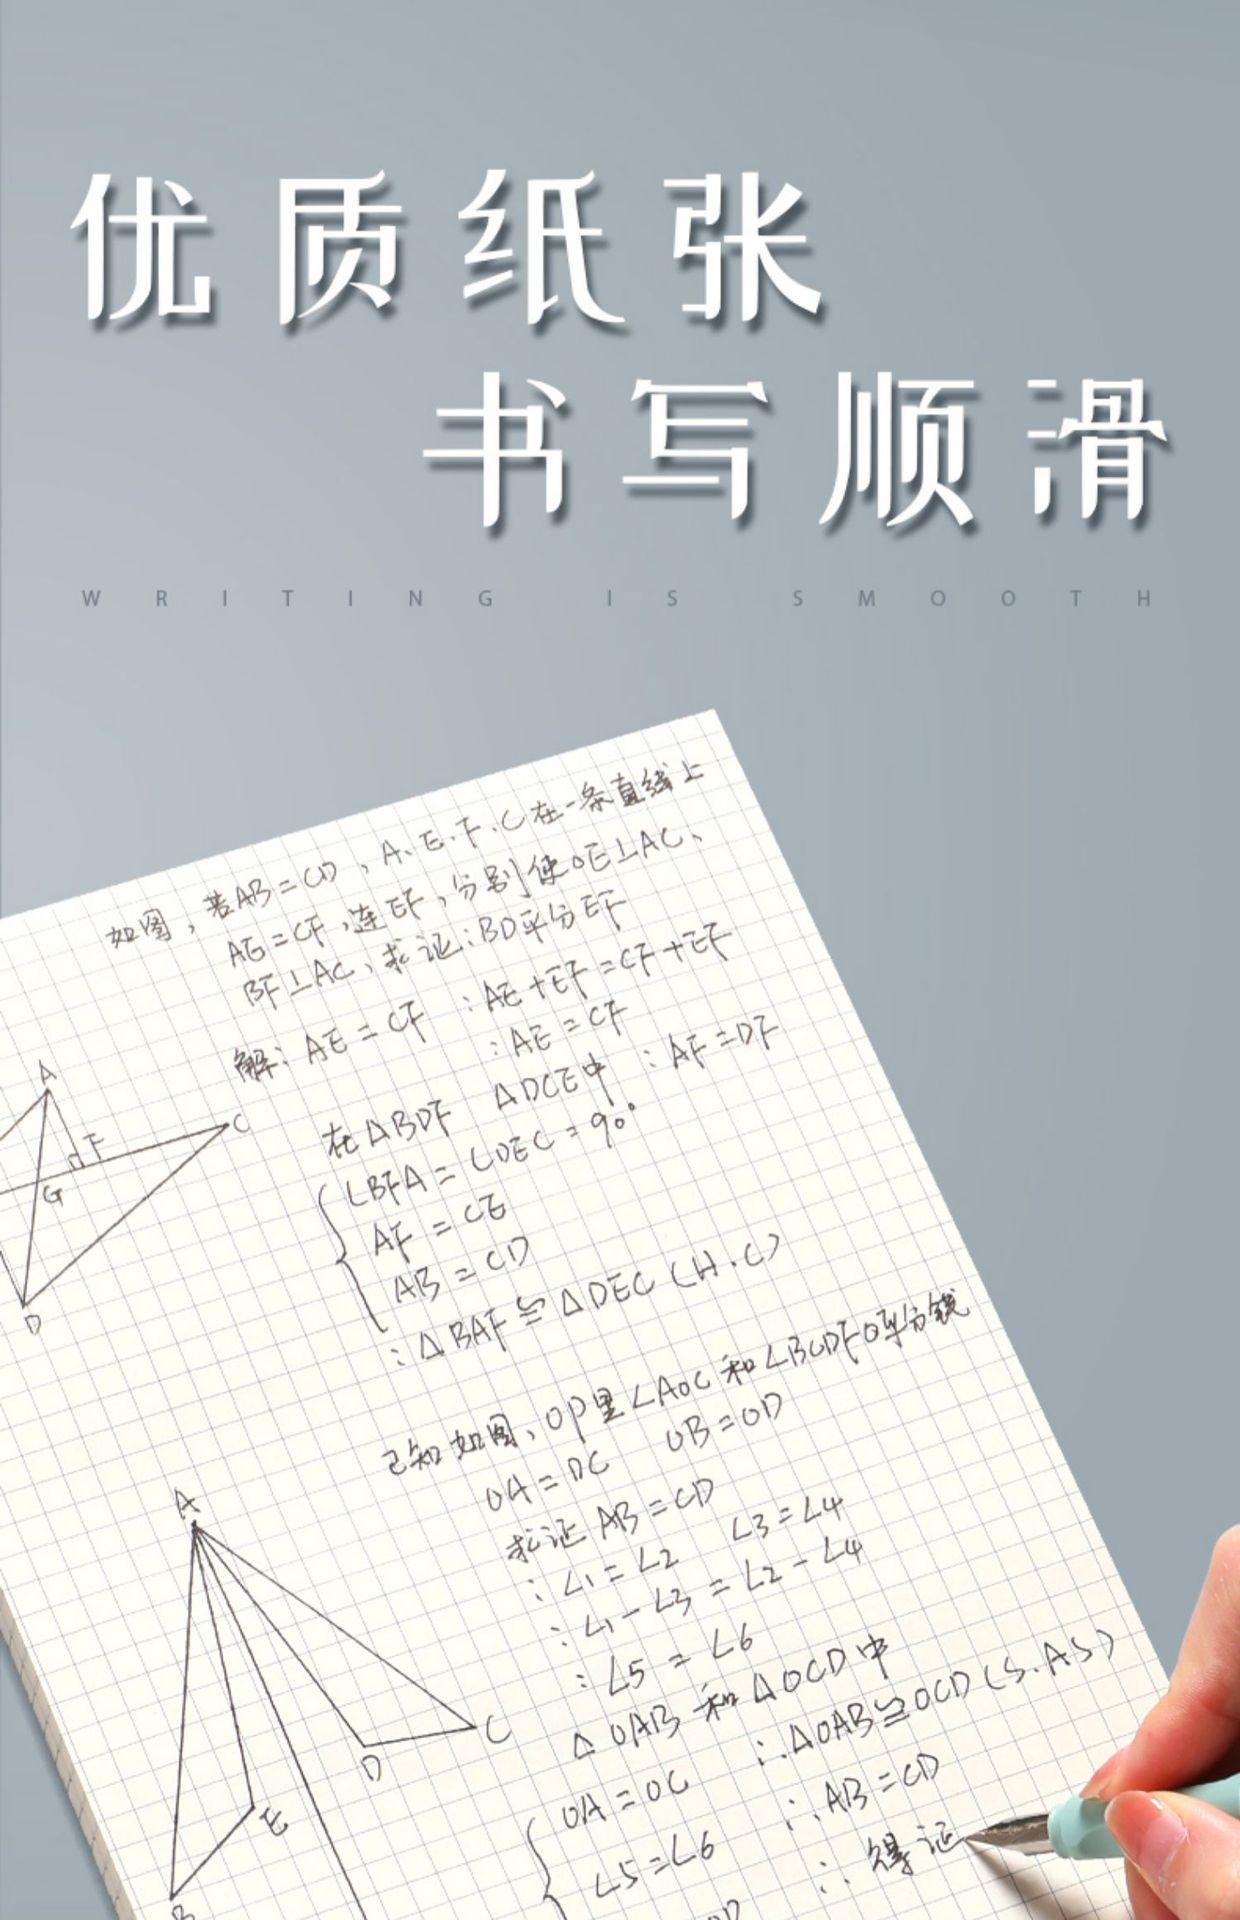 优质纸张
书写顺滑
WRITING IS SMOOTH
如图，若AB=CD，A、E、F、C在一条直线上
AE=CF，连EF，分别使DE⊥AC、
BF⊥AC、求证:BD平分EF
解: AE=CF ∵AE+EF=CF+EF
∵AE=CF
在△BDF △DCE中 ∵AF=DF
∠BFA=∠DEC=90°
AF=CE
AB=CD
∴△BAF≌△DEC(H.C)
A
F
C
G
D
已知如图、OP是∠AOC和∠BCDF平分线
OA=DC OB=OD
求证 AB=CD
∵∠1=∠2 ∠3=∠4
∵∠1-∠3=∠2-∠4
∵∠5=∠6
△OAB和△OCD中
OA=OC ∴△OAB≌OCD(S.AS)
∠5=∠6 ∴AB=CD
OD ∴得证
A
C
D
E
B